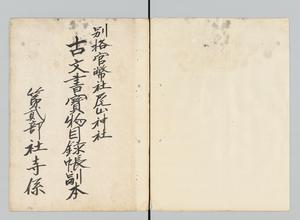 別格官幣社尾山神社
古文書寶物目録帳副本
第貳部社寺係